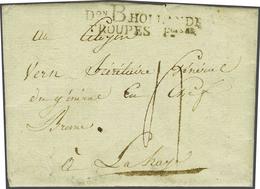 Don B. HOLLANDE
TROUPES
au Citoyen
Vern Secrétaire Général
du général En Chef
Brune
à La haye